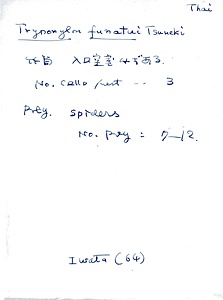 Thai
Trypoxylon funatui Tsuneki
入口空室
No. cells/nest -- 3
Prey. spiders
No. prey : 7-12
Iwata (64)